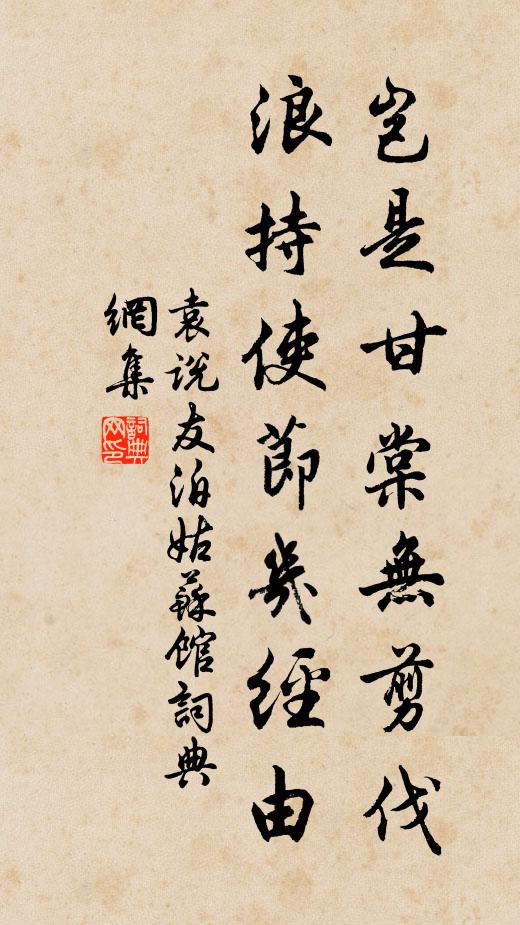 豈是甘棠無剪伐
浪持使節幾經由
袁說友泊姑蘇館詞典
網集
詞典
网印